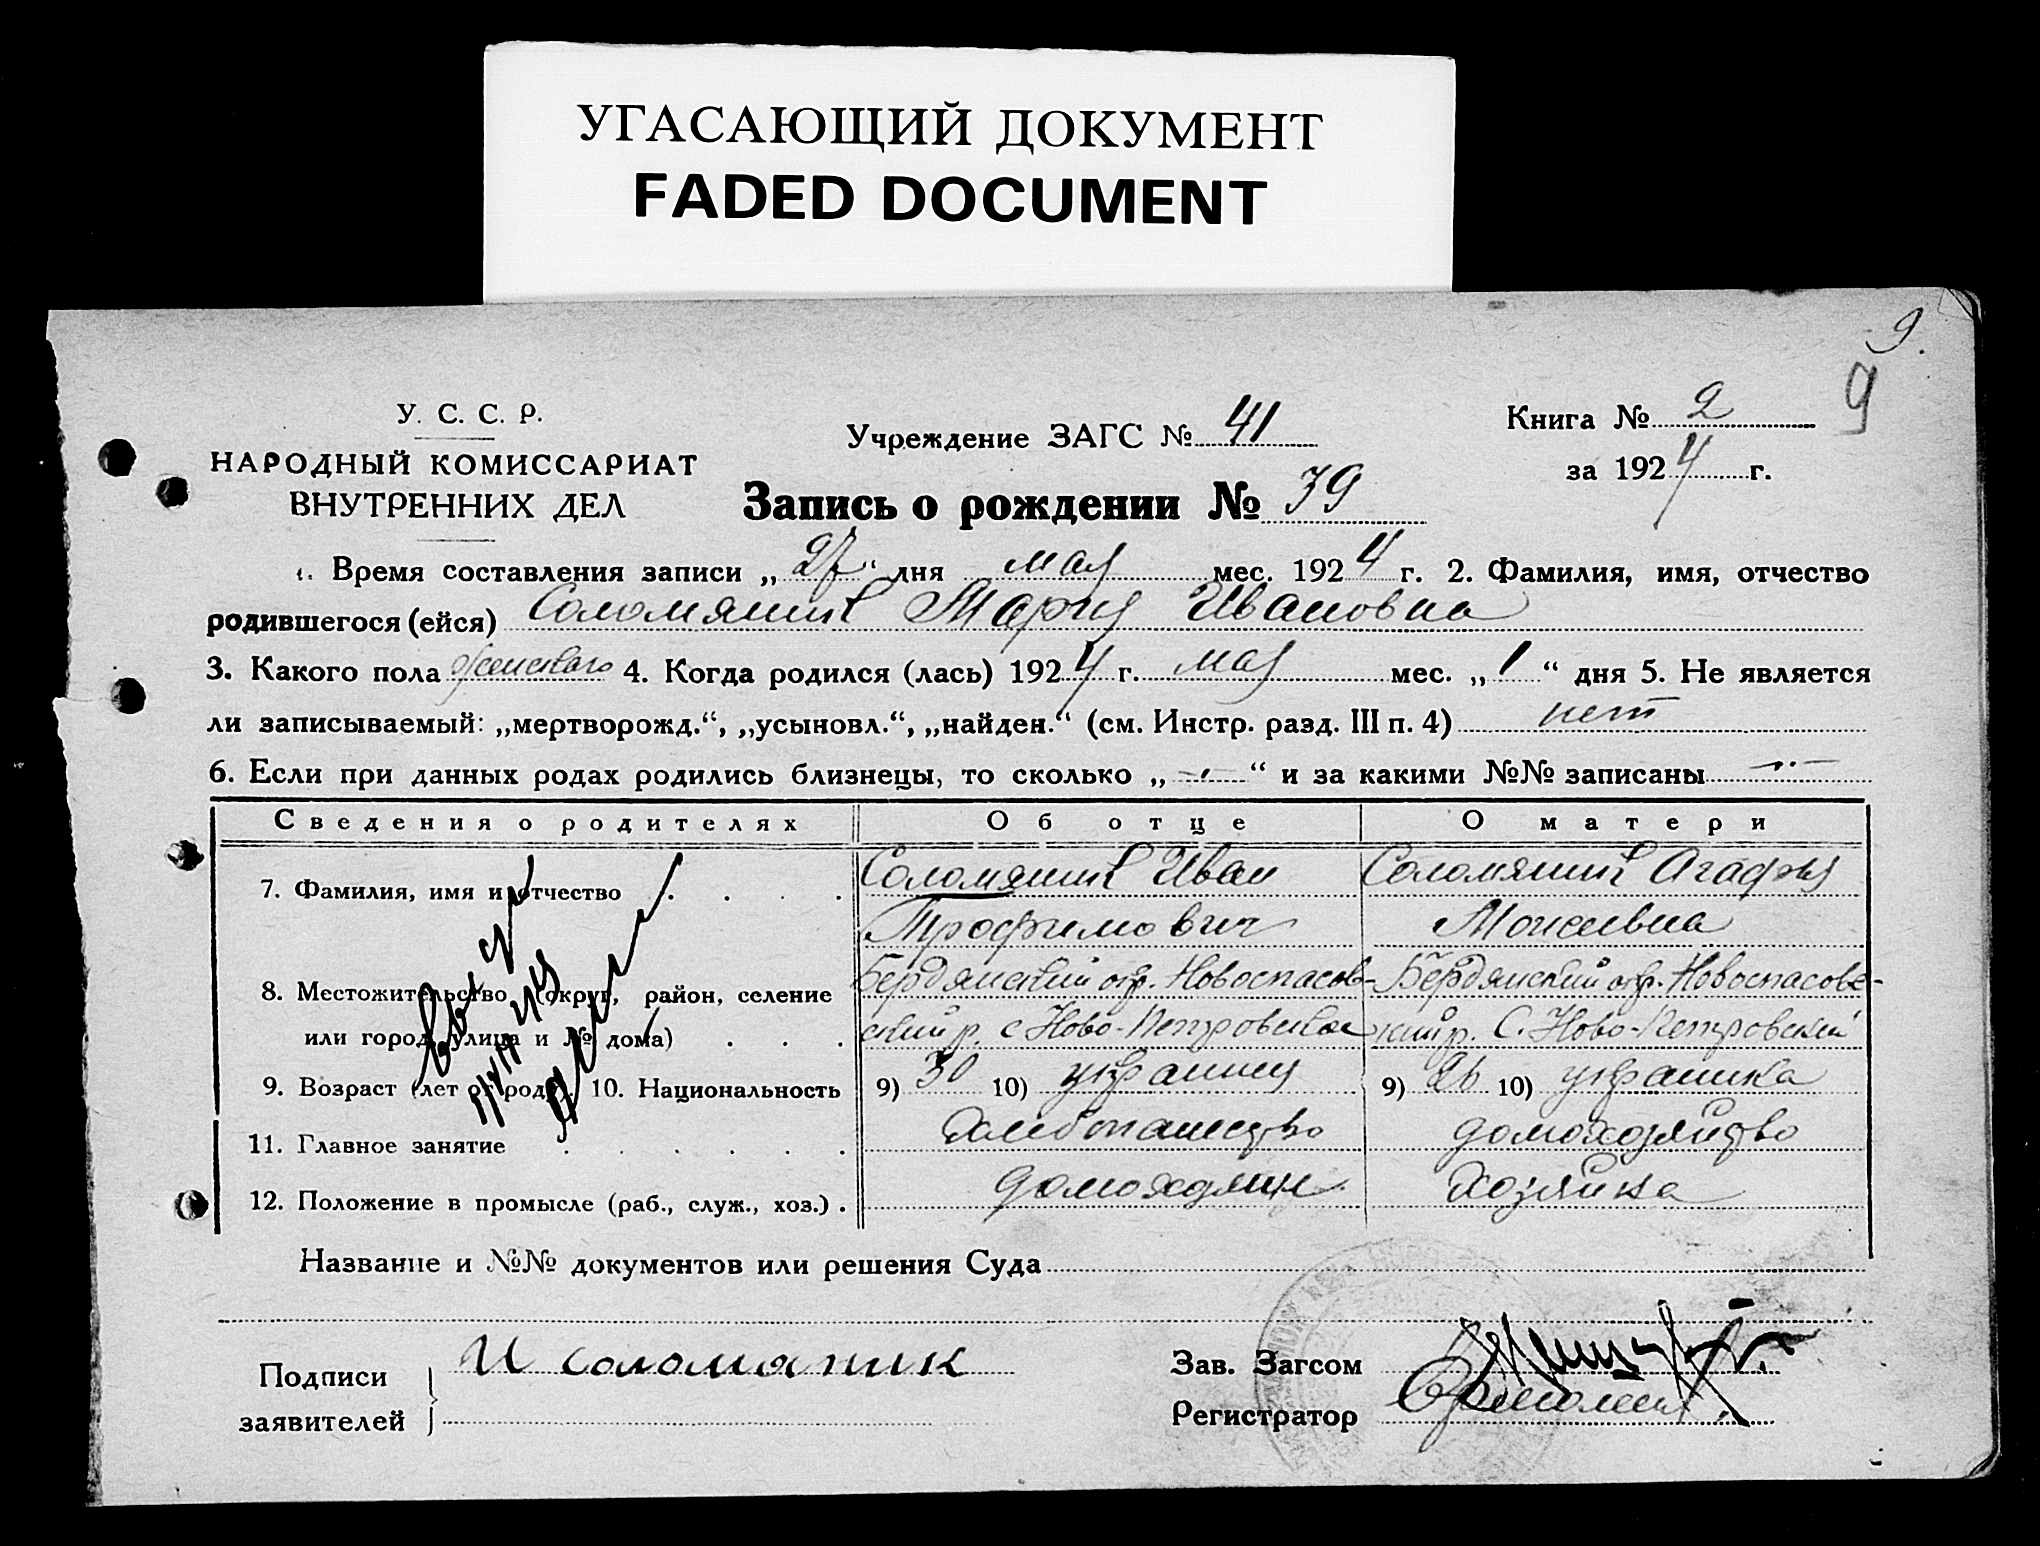 УГАСАЮЩИЙ ДОКУМЕНТ
FADED DOCUMENT
9.
9
У. С. С. Р.
НАРОДНЫЙ КОМИССАРИАТ
ВНУТРЕННИХ ДЕЛ
Учреждение ЗАГС № 41
Книга № 2
за 1924 г.
Запись о рождении № 39
1. Время составления записи „27“ дня мая мес. 1924 г. 2. Фамилия, имя, отчество
родившегося (ейся) Соломяник Мария Ивановна
3. Какого пола женского 4. Когда родился (лась) 1924 г. мая мес. „1“ дня 5. Не является
ли записываемый: „мертворожд.“, „усыновл.“, „найден.“ (см. Инстр. разд. III п. 4) нет
6. Если при данных родах родились близнецы, то сколько „-„-“ и за какими №№ записаны -„-
Сведения о родителях Об отце О матери
7. Фамилия, имя и отчество . . . Соломяник Иван Соломяник Агафья
Трофимович Моисеевна
8. Местожительство (округ, район, селение Бердянский окр. Новоспасов- Бердянский окр. Новоспасовс-
или город, улица и № дома) . . . ский р. с Ново-Петровское кий р. С. Ново-Петровский
9. Возраст (лет от роду). 10. Национальность 9) 30 10) украинец 9) 26 10) украинка
11. Главное занятие . . . . . . Хлебопашество домохозяйство
12. Положение в промысле (раб., служ., хоз.) . домохозяин хозяйка
Название и №№ документов или решения Суда
Подписи
заявителей
И соломяник
Зав. Загсом
Регистратор